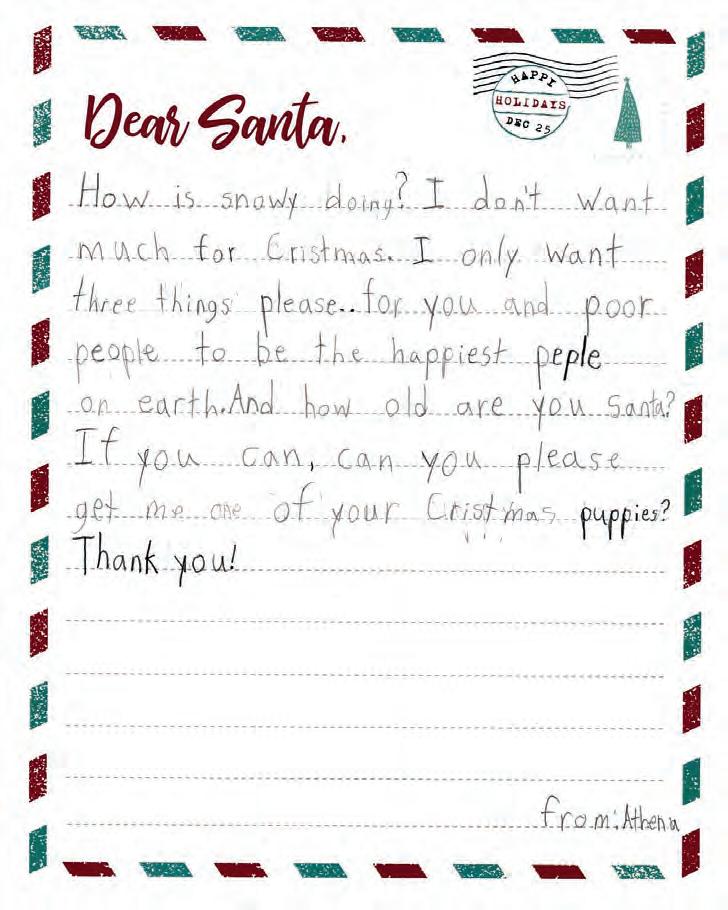 HAPPY
HOLIDAYS
DEC 25
Dear Santa,
How is snowy doing? I don't want
much for Cristmas. I only want
three things please..for you and poor
people to be the happiest peple
on earth.And how old are you Santa?
If you can, can you please
get me one of your Cristmas puppies?
Thank you!
from: Athena